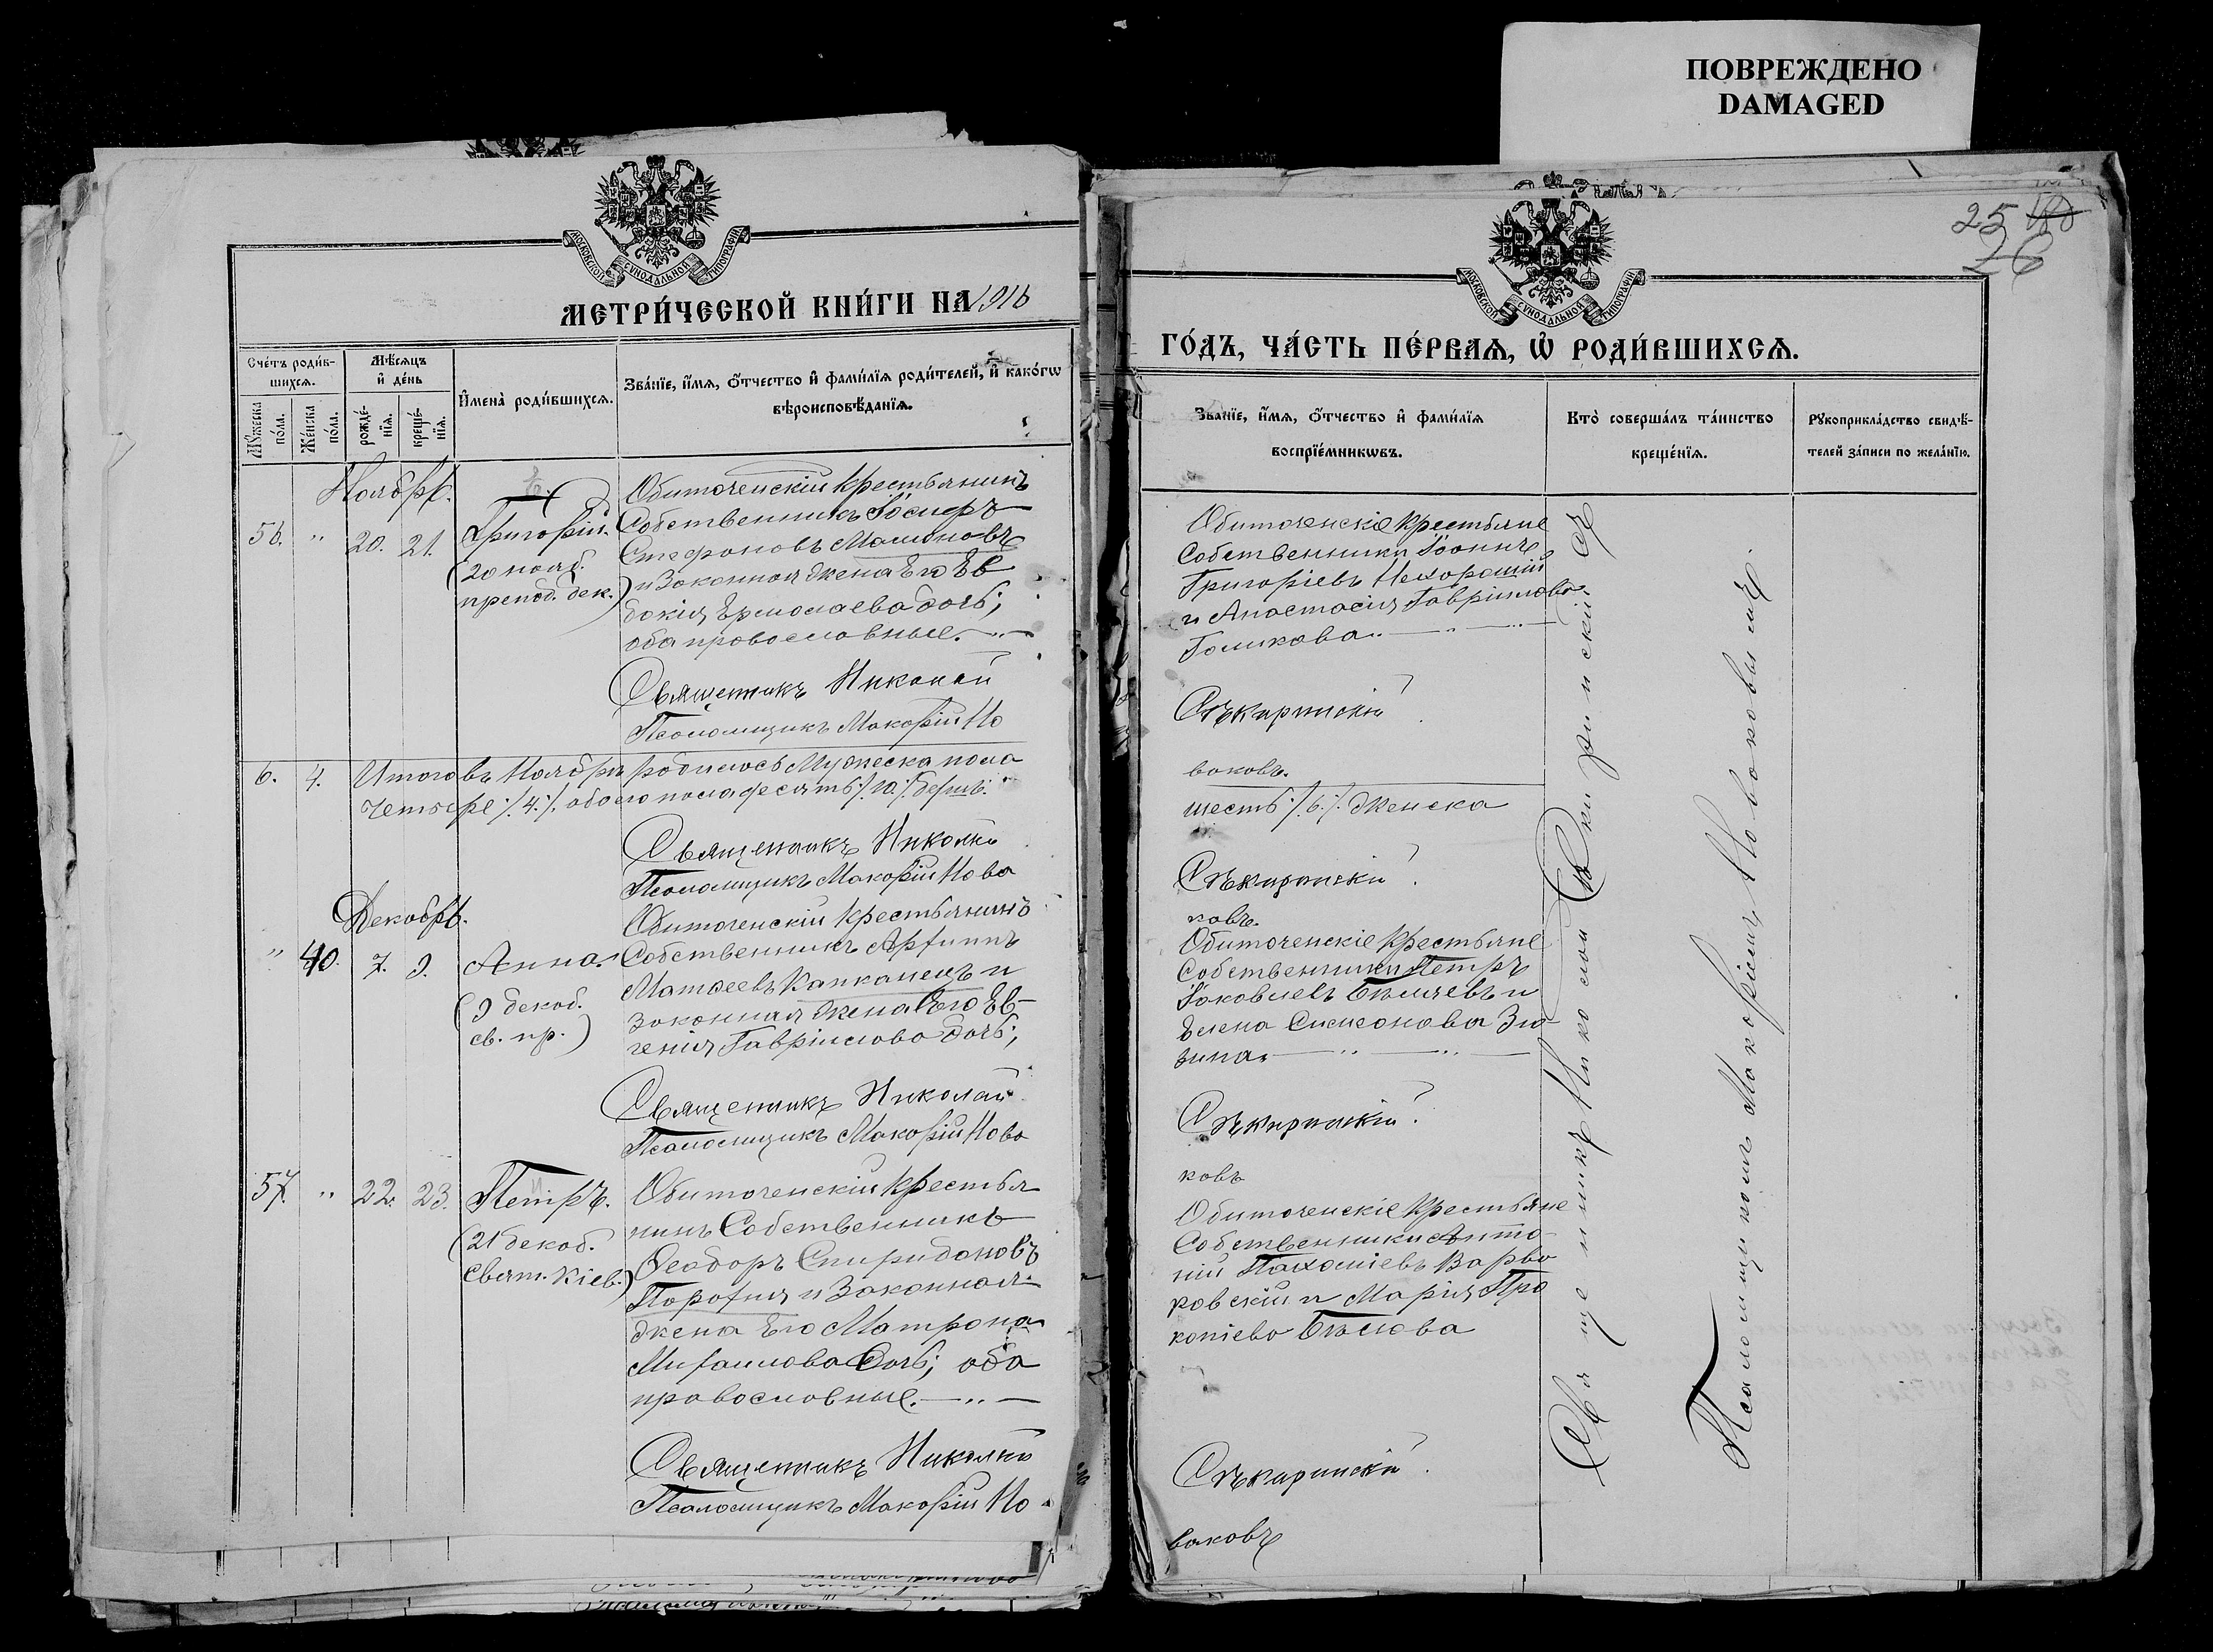 ПОВРЕЖДЕНО
DAMAGED
МОСКОВСКОЙ СѴНОДАЛЬНОЙ ТИПОГРАФІИ
МЕТРИ́ЧЕСКОЙ КНИ́ГИ НА 1916
Сче́тъ роди́в-
шихсѧ.
Мѣ́сѧцъ
и҆ де́нь
Му́жеска
по́ла.
Же́нска
по́ла.
рожде́-
нїѧ.
креще́-
нїѧ.
И҆мена̀ роди́вшихсѧ.
Зва́нїе, и҆́мѧ, ѻ҆́тчество и҆ фами́лїѧ роди́телей, и҆ како́гѡ
вѣроисповѣ́данїѧ.
Ноябрь.
56. " 20. 21. Григорій.
(20 нояб.
препод. дек.)
Обиточенскій крестьянинъ
Собственникъ Іосифъ
Стефановъ Малиновъ
и законная жена его Ев
докія Ермолаева дочь;
оба православные.
Священникъ Николай
Псаломщикъ Макарій Но
6. 4. Итого въ Ноябрѣ родилось Мужеска пола
четыре /.4./. обоего пола десять /.10./ душъ.
Священникъ Николай
Псаломщикъ Макарій Нова
Декабрь.
" 40. 7. 9. Анна.
(9 декаб.
св. пр.)
Обиточенскій крестьянинъ
Собственникъ
Матѳеевъ Капканецъ и
законная жена его Ев-
генія Гавріилова дочь;
Священникъ Николай
Псаломщикъ Макарій Нова
57. " 22. 23. Петръ.
(21 декаб.
Свят. Кіев.)
Обиточенскій крестья
нинъ Собственникъ
Ѳеодоръ Спиридоновъ
и законная
жена его Матрона
Михаилова дочь; оба
православные.
Священникъ Николай
Псаломщикъ Макарій Но
25
26
МОСКОВСКОЙ СѴНОДАЛЬНОЙ ТИПОГРАФІИ
ГО́ДЪ, ЧА́СТЬ ПЕ́РВАѦ, Ѡ҆ РОДИ́ВШИХСѦ.
Зва́нїе, и҆́мѧ, ѻ҆́тчество и҆ фами́лїѧ
воспрїе́мникѡвъ.
Кто̀ соверша́лъ та́инство
креще́нїѧ.
Рꙋкоприкла́дство свидѣ́-
телей за́писи по жела́нїю.
Обиточенскіе крестьяне
Собственники Іоаннъ
Григоріевъ Нехорошій
и Анастасія Гавріилова
Голикова.
Сѣкиринскій
ваковъ.
шесть /.6./. Женска
Сѣкиринскій
ковъ.
Обиточенскіе крестьяне
Собственники Петръ
Іаковлевъ Бѣляевъ и
Елена Симеонова Зю-
зина.
Сѣкиринскій.
ковъ
Обиточенскіе крестьяне
Собственники Анто-
ній Пахоміевъ Варва
ровскій и Марія Про
копіева Бѣлова
Сѣкиринскій
ваковъ
Священникъ Николай Сѣкиринскій съ
Псаломщикомъ Макаріемъ Новаковымъ.